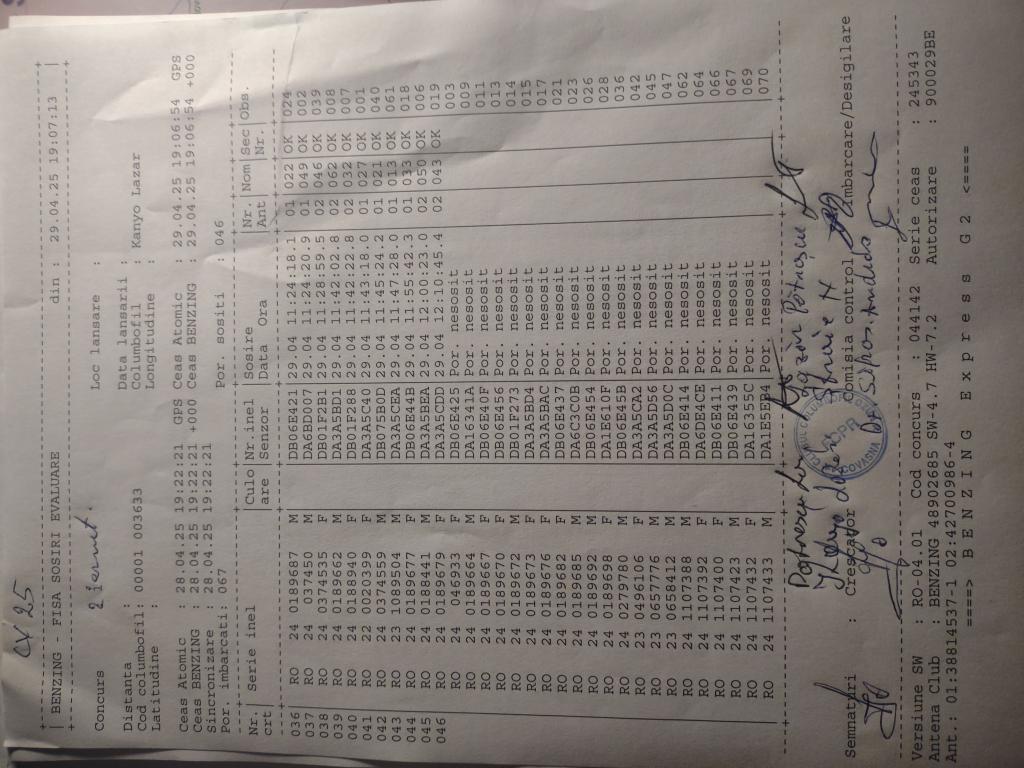 CV 25
BENZING - FISA SOSIRI EVALUARE din : 29.04.25 19:07:13
Concurs 2 iernut. Loc lansare :
Distanta : Data lansarii :
Cod columbofil: 00001 003633 Columbofil : Kanyo Lazar
Latitudine : Longitudine :
Ceas Atomic : 28.04.25 19:22:21 GPS Ceas Atomic : 29.04.25 19:06:54 GPS
Ceas BENZING : 28.04.25 19:22:21 +000 Ceas BENZING : 29.04.25 19:06:54 +000
Sincronizare : 28.04.25 19:22:21
Por. imbarcati: 067 Por. sositi : 046
Nr. Serie inel Culo Nr.inel Sosire Nr. Nom Sec Obs.
crt are Senzor Data Ora Ant Nr.
036 RO 24 0189687 M DB06E421 29.04 11:24:18.1 01 022 OK 024
037 RO 24 037450 M DA6BD007 29.04 11:24:20.9 01 049 OK 002
038 RO 24 0374535 F DB01F2B1 29.04 11:28:59.5 02 046 OK 039
039 RO 24 0189662 M DA3A5BD1 29.04 11:42:02.8 02 062 OK 008
040 RO 24 0188940 F DB01F288 29.04 11:42:22.8 02 032 OK 007
041 RO 22 0020399 F DA3A5C40 29.04 11:43:18.0 01 027 OK 001
042 RO 24 0374559 M DB075B0D 29.04 11:45:24.2 01 021 OK 040
043 RO 23 1089504 M DA3A5CEA 29.04 11:47:28.0 01 013 OK 061
044 RO 24 0189677 F DB06E44B 29.04 11:55:42.3 01 033 OK 018
045 RO 24 0188441 M DA3A5BEA 29.04 12:00:23.0 02 050 OK 006
046 RO 24 0189679 F DA3A5CDD 29.04 12:10:45.4 02 043 OK 019
RO 24 046933 F DB06E425 Por. nesosit 003
RO 24 0189664 M DA16341A Por. nesosit 009
RO 24 0189667 F DB06E40F Por. nesosit 011
RO 24 0189670 F DB06E456 Por. nesosit 013
RO 24 0189672 M DB01F273 Por. nesosit 014
RO 24 0189673 F DA3A5BD4 Por. nesosit 015
RO 24 0189676 F DA3A5BAC Por. nesosit 017
RO 24 0189682 F DB06E437 Por. nesosit 021
RO 24 0189685 M DA6C3C0B Por. nesosit 023
RO 24 0189692 M DB06E454 Por. nesosit 026
RO 24 0189698 F DA1E610F Por. nesosit 028
RO 24 0279780 M DB06E45B Por. nesosit 036
RO 23 0496106 F DA3A5CA2 Por. nesosit 042
RO 23 0657776 M DA3A5D56 Por. nesosit 045
RO 23 0658412 M DA3A5D0C Por. nesosit 047
RO 24 1107388 M DB06E414 Por. nesosit 062
RO 24 1107392 F DA6DE4CE Por. nesosit 064
RO 24 1107400 F DB06E411 Por. nesosit 066
RO 24 1107423 M DB06E439 Por. nesosit 067
RO 24 1107432 F DA16355C Por. nesosit 069
RO 24 1107433 M DA1E5EB4 Por. nesosit 070
Semnaturi : Crescator Comisia control Imbarcare/Desigilare
COVASNA
Versiune SW : RO-04.01 Cod concurs : 044142 Serie ceas : 245343
Antena Club : BENZING 48902685 SW-4.7 HW-7.2 Autorizare : 900029BE
Ant.: 01:38814537-1 02:42700986-4
====> B E N Z I N G E x p r e s s G 2 <====